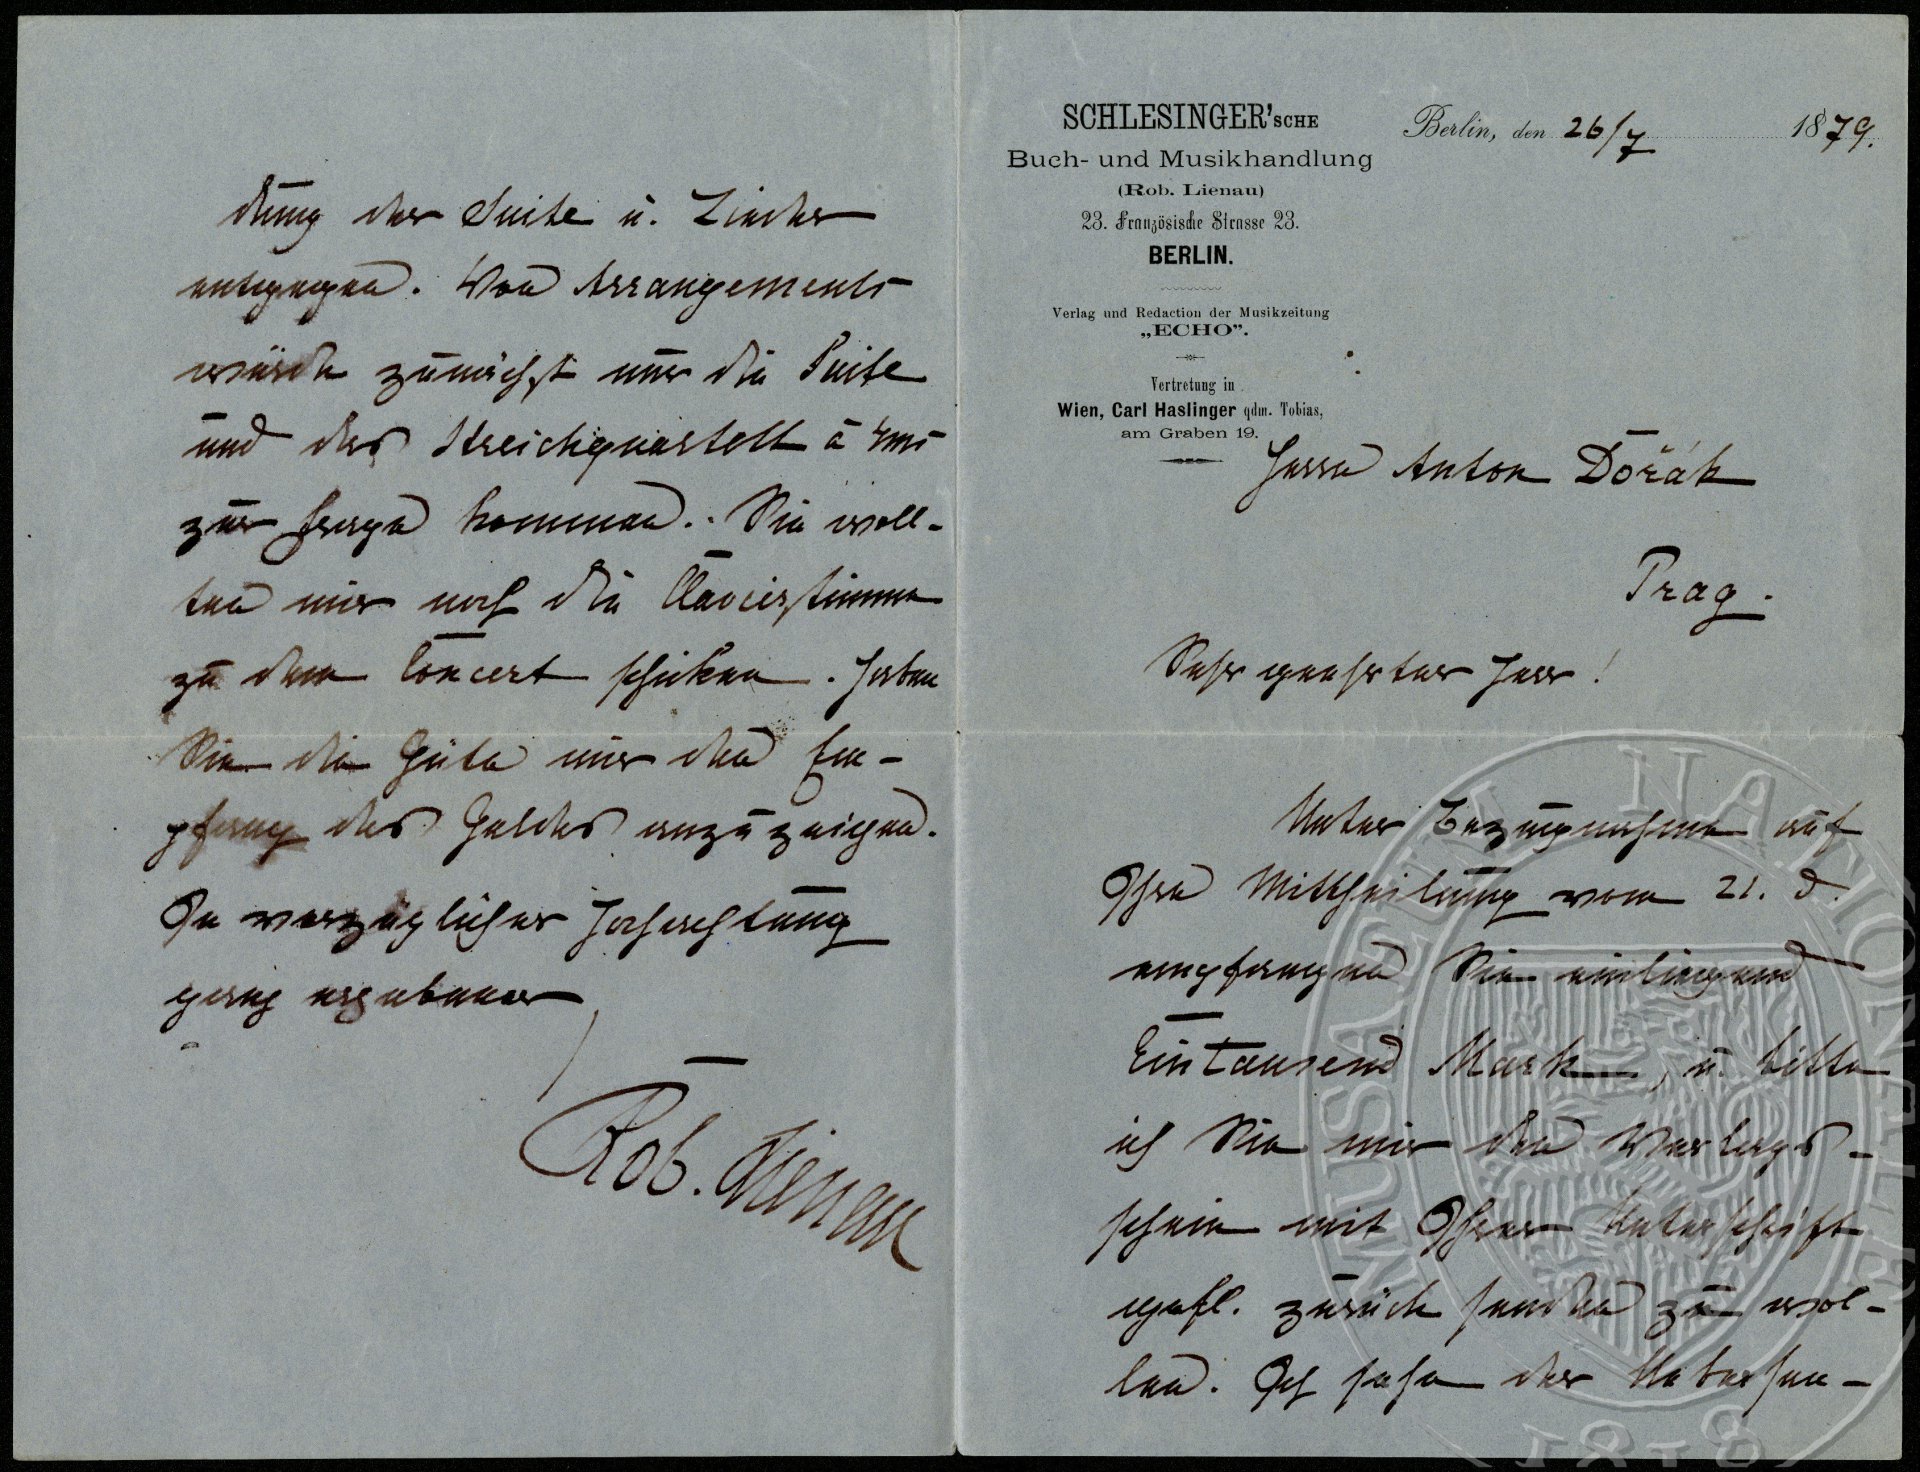 SCHLESINGER'SCHE
Buch- und Musikhandlung
(Rob. Lienau)
23. Französische Strasse 23.
BERLIN.
Verlag und Redaction der Musikzeitung
„ECHO”.
Vertretung in
Wien, Carl Haslinger qdm. Tobias,
am Graben 19.
Berlin, den 26/7 1879.
Herrn Anton Dořák
Prag.
Sehr geehrter Herr!
Unter Bezugnahme auf
Ihre Mittheilung vom 21. d.
empfangen Sie einliegend
Eintausend Mark, u. bitte
ich Sie mir den Verlags-
schein mit Ihrer Unterschrift
gefl. zurück senden zu wol-
len. Ich sehe der Uebersen-
dung der Suite u. Lieder
entgegen. Von Arrangements
würde zunächst nur die Suite
und das Streichquartett à 4ms
zur Frage kommen. Sie woll-
ten mir noch die Clavierstimme
zu dem Concert schicken. Haben
Sie die Güte mir den Em-
pfang des Geldes anzuzeigen.
In vorzüglicher Hochachtung
ganz ergebener
Rob. Lienau
MUSAEUM NATIONALE
1818